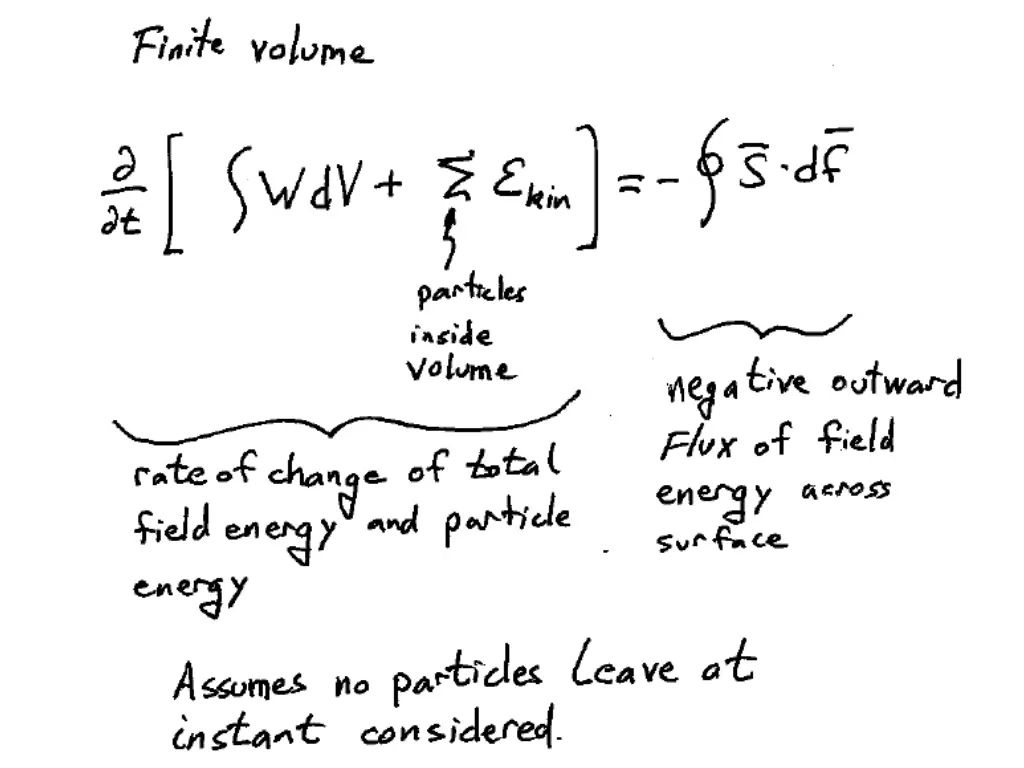 Finite volume
∂/∂t [ ∫ W dV + Σ Ɛkin ] = - ∮ S̄ · df̄
particles
inside
volume
rate of change of total
field energy and particle
energy
negative outward
Flux of field
energy across
surface
Assumes no particles Leave at
instant considered.